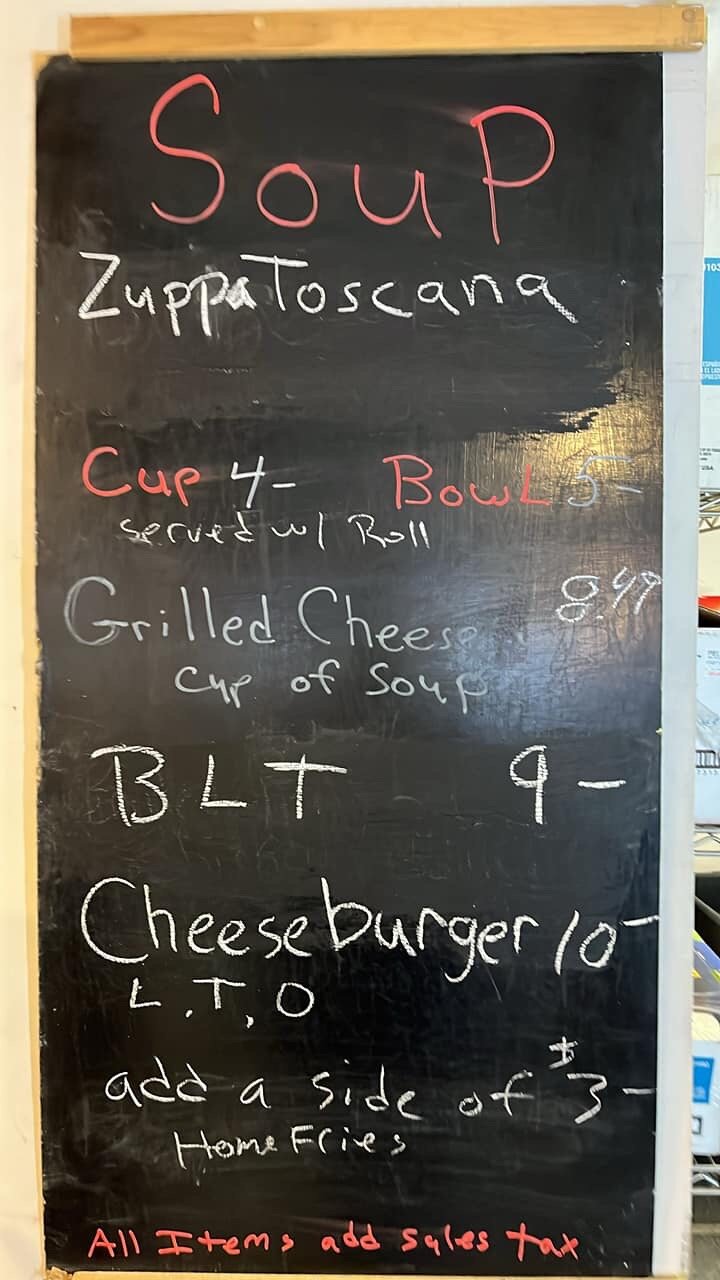 SouP
Zuppa Toscana
Cup 4- Bowl 5-
served w/ Roll
Grilled Cheese 8.49
cup of soup
BLT 9-
Cheeseburger 10-
L, T, O
add a side of ± 3-
Home Fries
All Items add sales tax